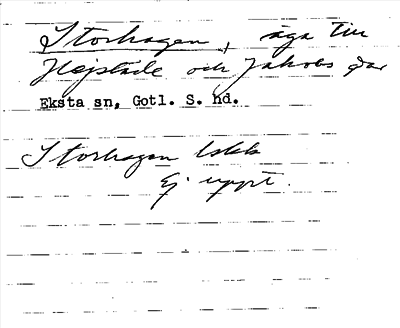 Storhagen, äga till
Hejstäde och Jakobs går
Eksta sn, Gotl. S. hd.
Storhagen Lskk
Ej uppt.